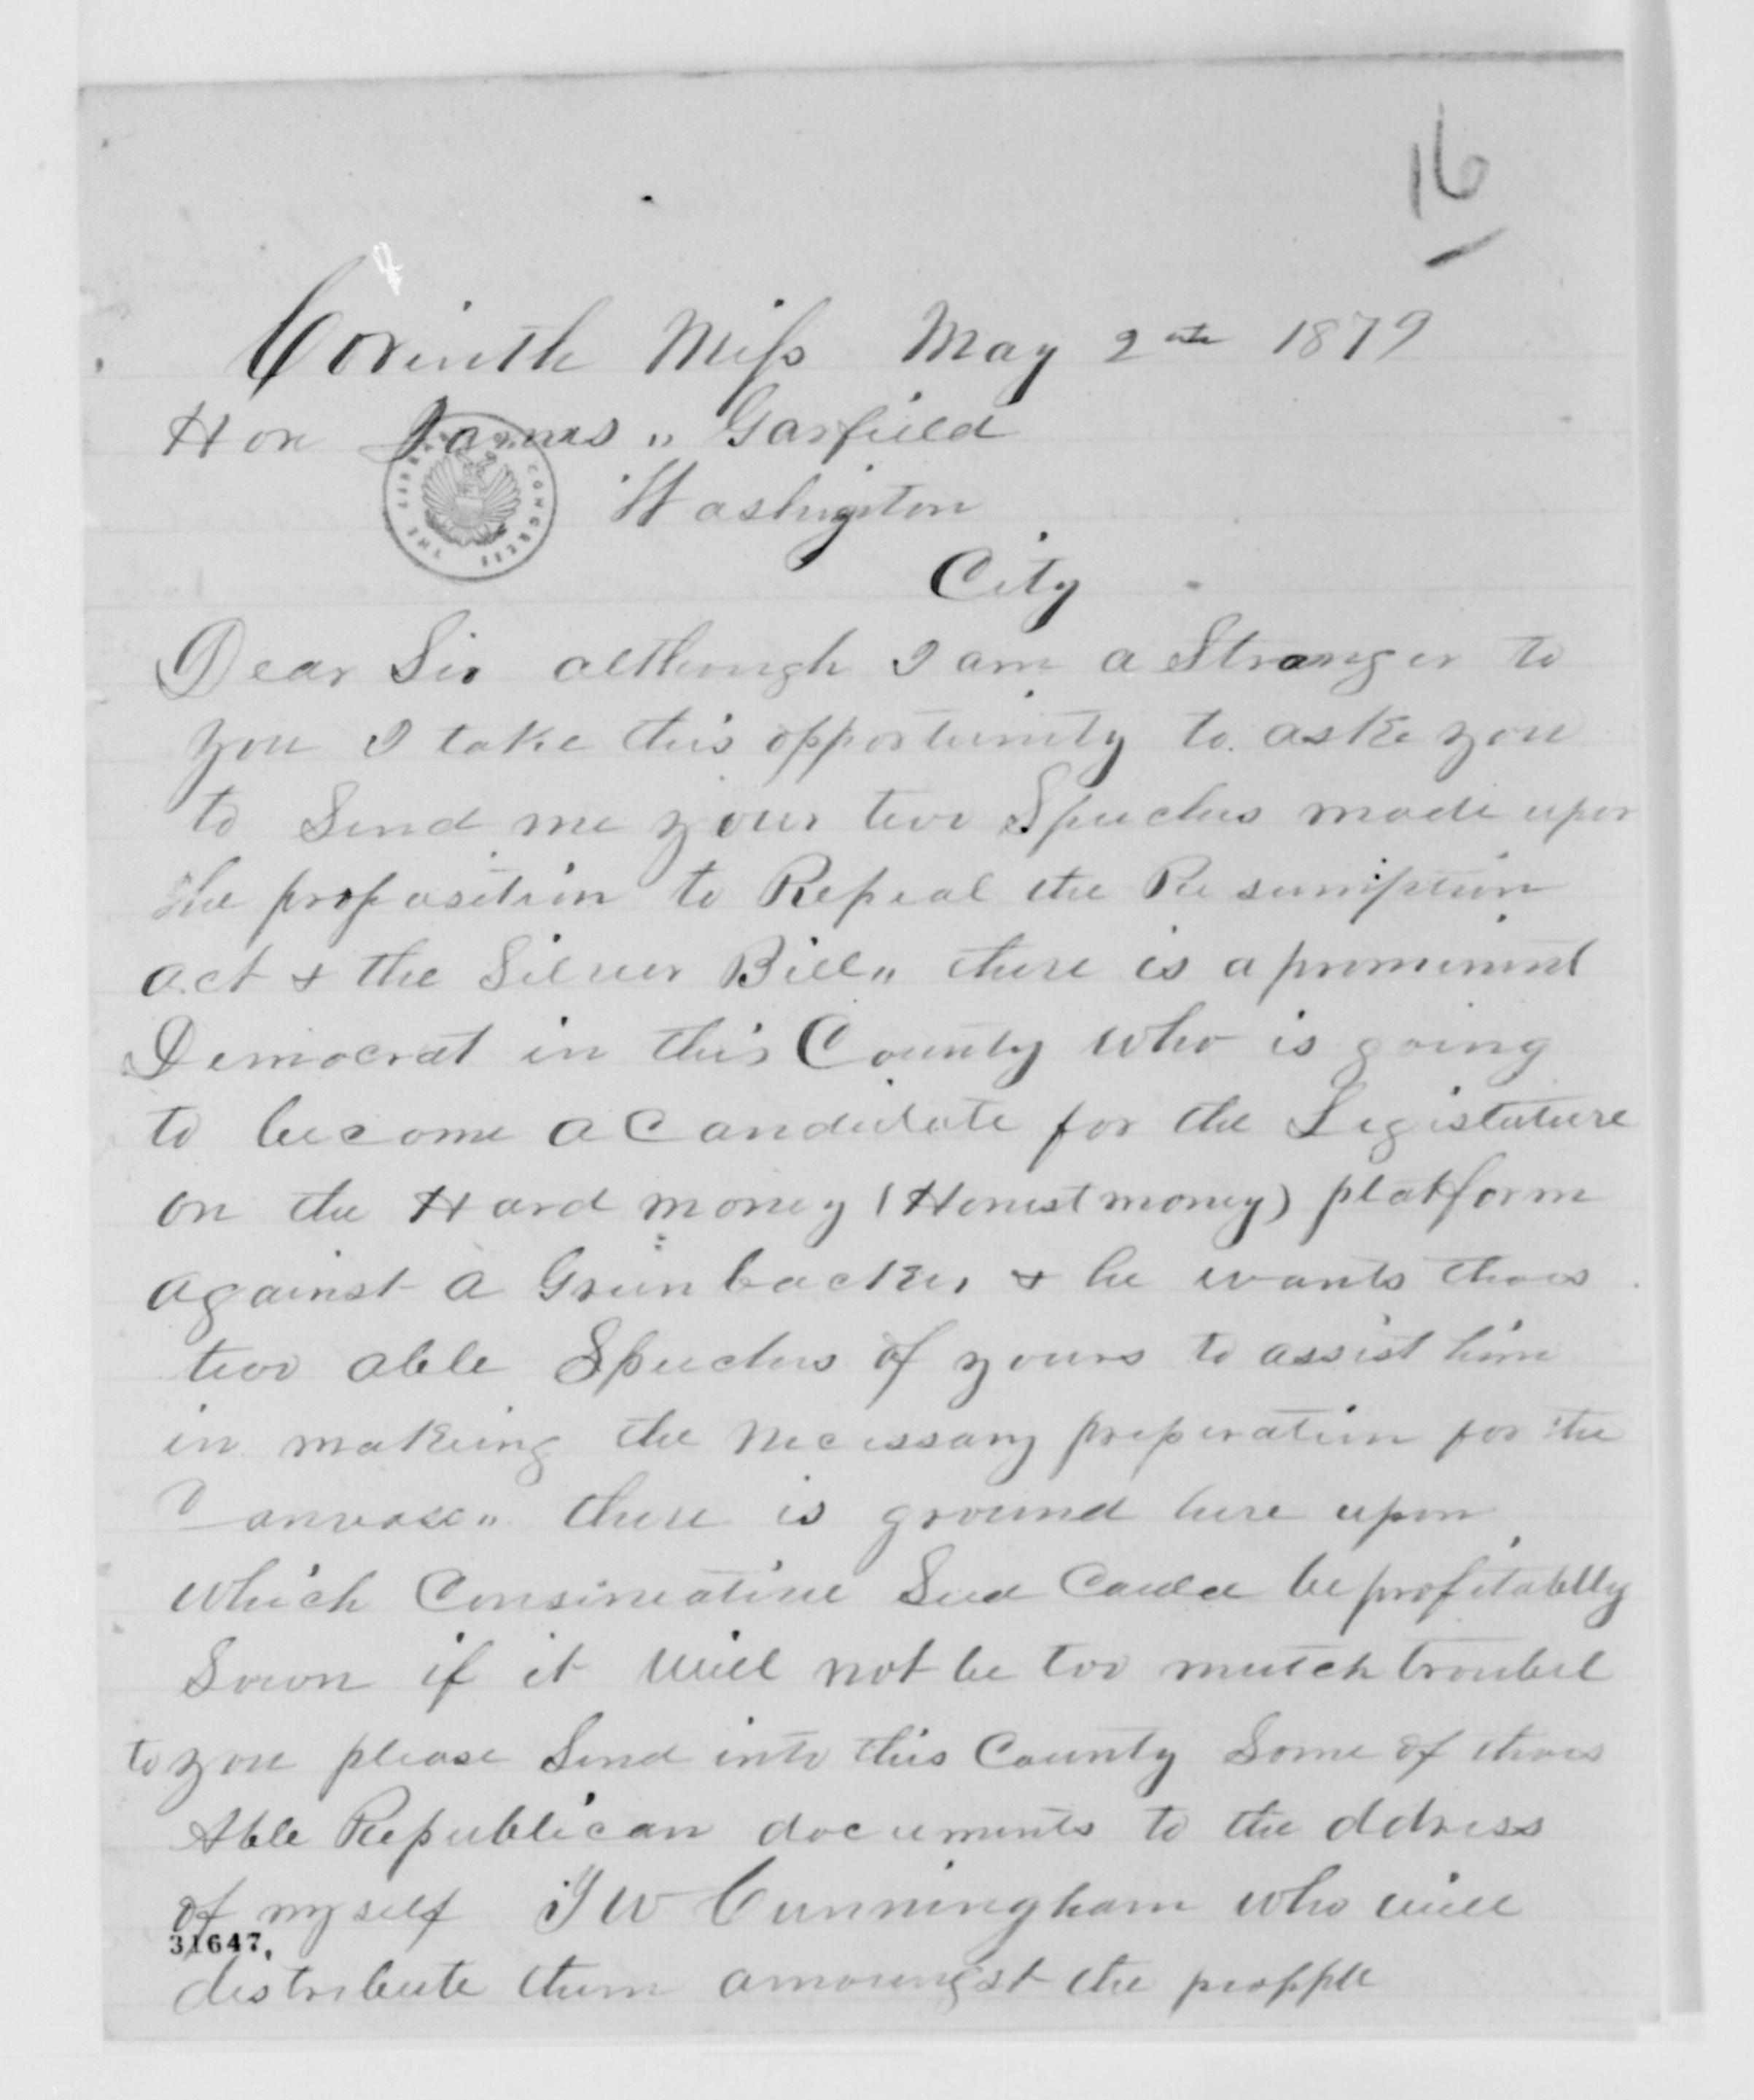 16
Corinth Miss May 2nd 1879
Hon James " Garfield
THE LIBRARY OF CONGRESS
Washington
City
Dear Sir although I am a Stranger to
you I take this opportunity to aske you
to Send me your two Speeches made upon
the proposition to Repeal the Resumption
act & the Silver Bill " there is a prominent
Democrat in this County who is going
to become a Candidate for the Legistature
on the Hard money (Honest money) platform
against a Greenbacker & he wants thoes
two able Speeches of yours to assist him
in makeing the necessary preperation for the
Canvass " there is ground here upon
which Conserveative Seed Could be profitablly
Sown if it will not be too mutch troubel
to you please Send into this County Some of thoes
Able Republican documents to the ddress
of myself W Cunningham who will
31647.
distribute them amoungst the peopple